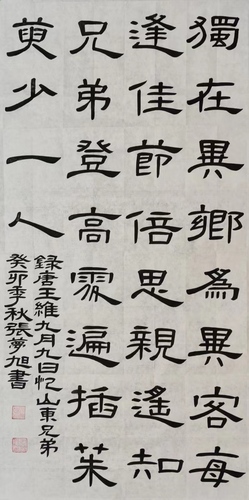 獨在異鄉為異客每
逢佳節倍思親遙知
兄弟登高處遍插茱
萸少一人
錄唐王維九月九日忆山東兄弟
癸卯季秋張夢旭書